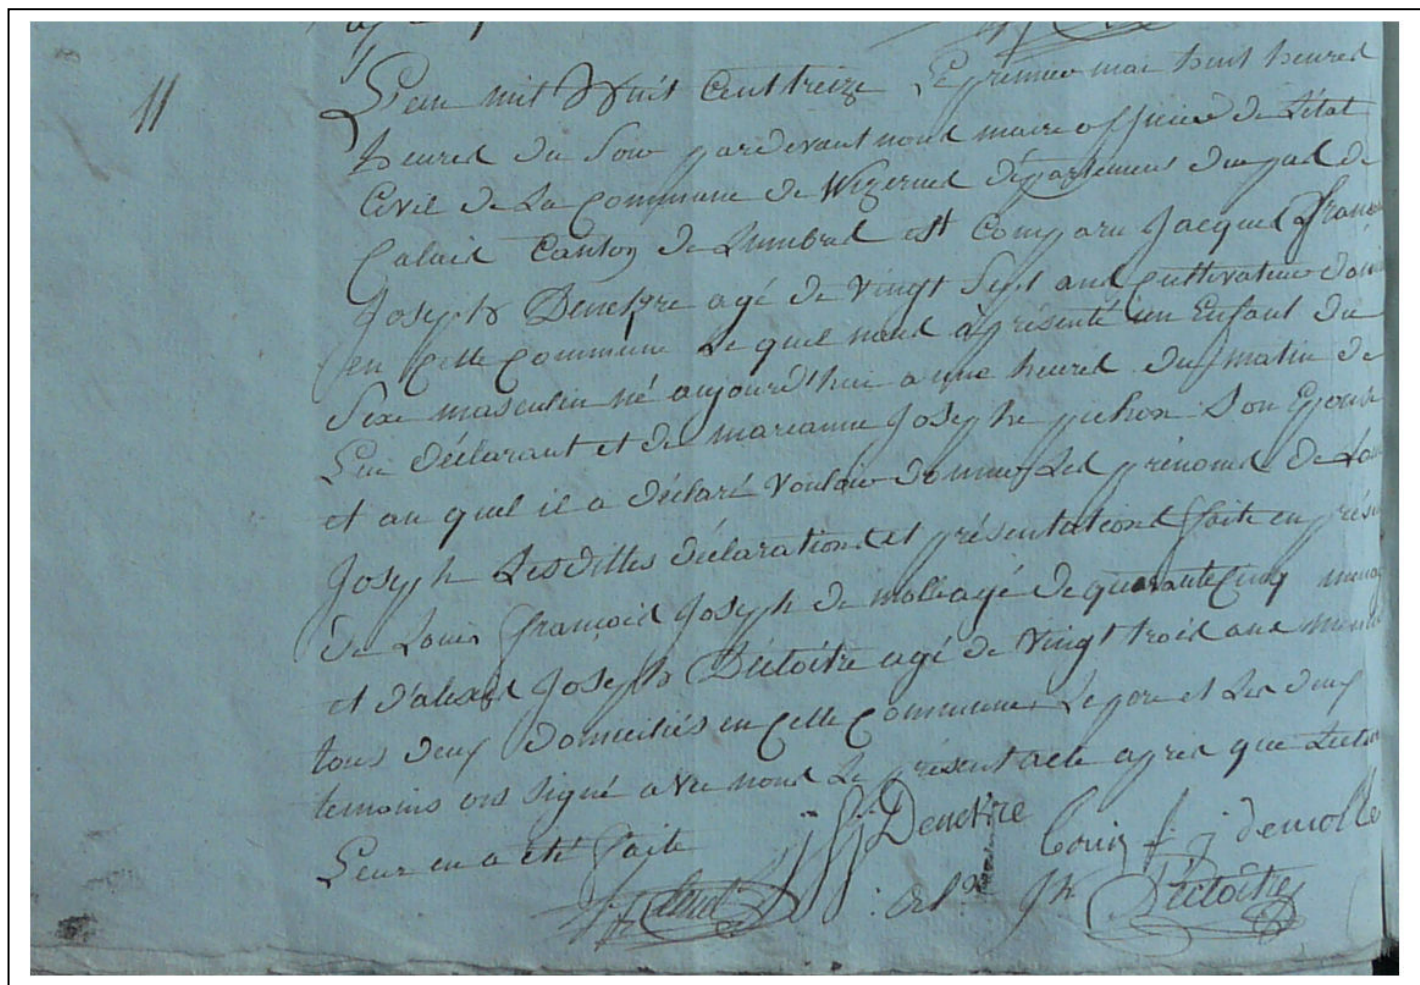 11
L'an mil huit cent treize Le premier mai huit heures
heures du soir pardevant nous maire officier de l'état
Civil de La Commune de Wizernes département du pas de
Calais Canton de Lumbres est Comparu Jacques
Joseph Denekre agé de vingt Sept ans Cultivateur
en Cette Commune Le quel nous à présenté un Enfant du
Sexe masculin né aujourd'hui a une heures du matin de
Lui déclarant et de marianne Josephe pichon Son Epouse
et au quel il a déclaré vouloir donner Les prénoms de
Joseph Lesdittes déclarations et présentations faite en
de Louis françois Joseph de molle agé de quarante Cinq
et d'alexis Joseph Déctoitre agé de vingt trois ans
tous deux domiciliés en Cette Commune, Le pere et Les deux
temoins ont signé avec nous Le présent acte après que
Leur en a été faite
Denekre Louis f. j demolle
Jh Déctoitre